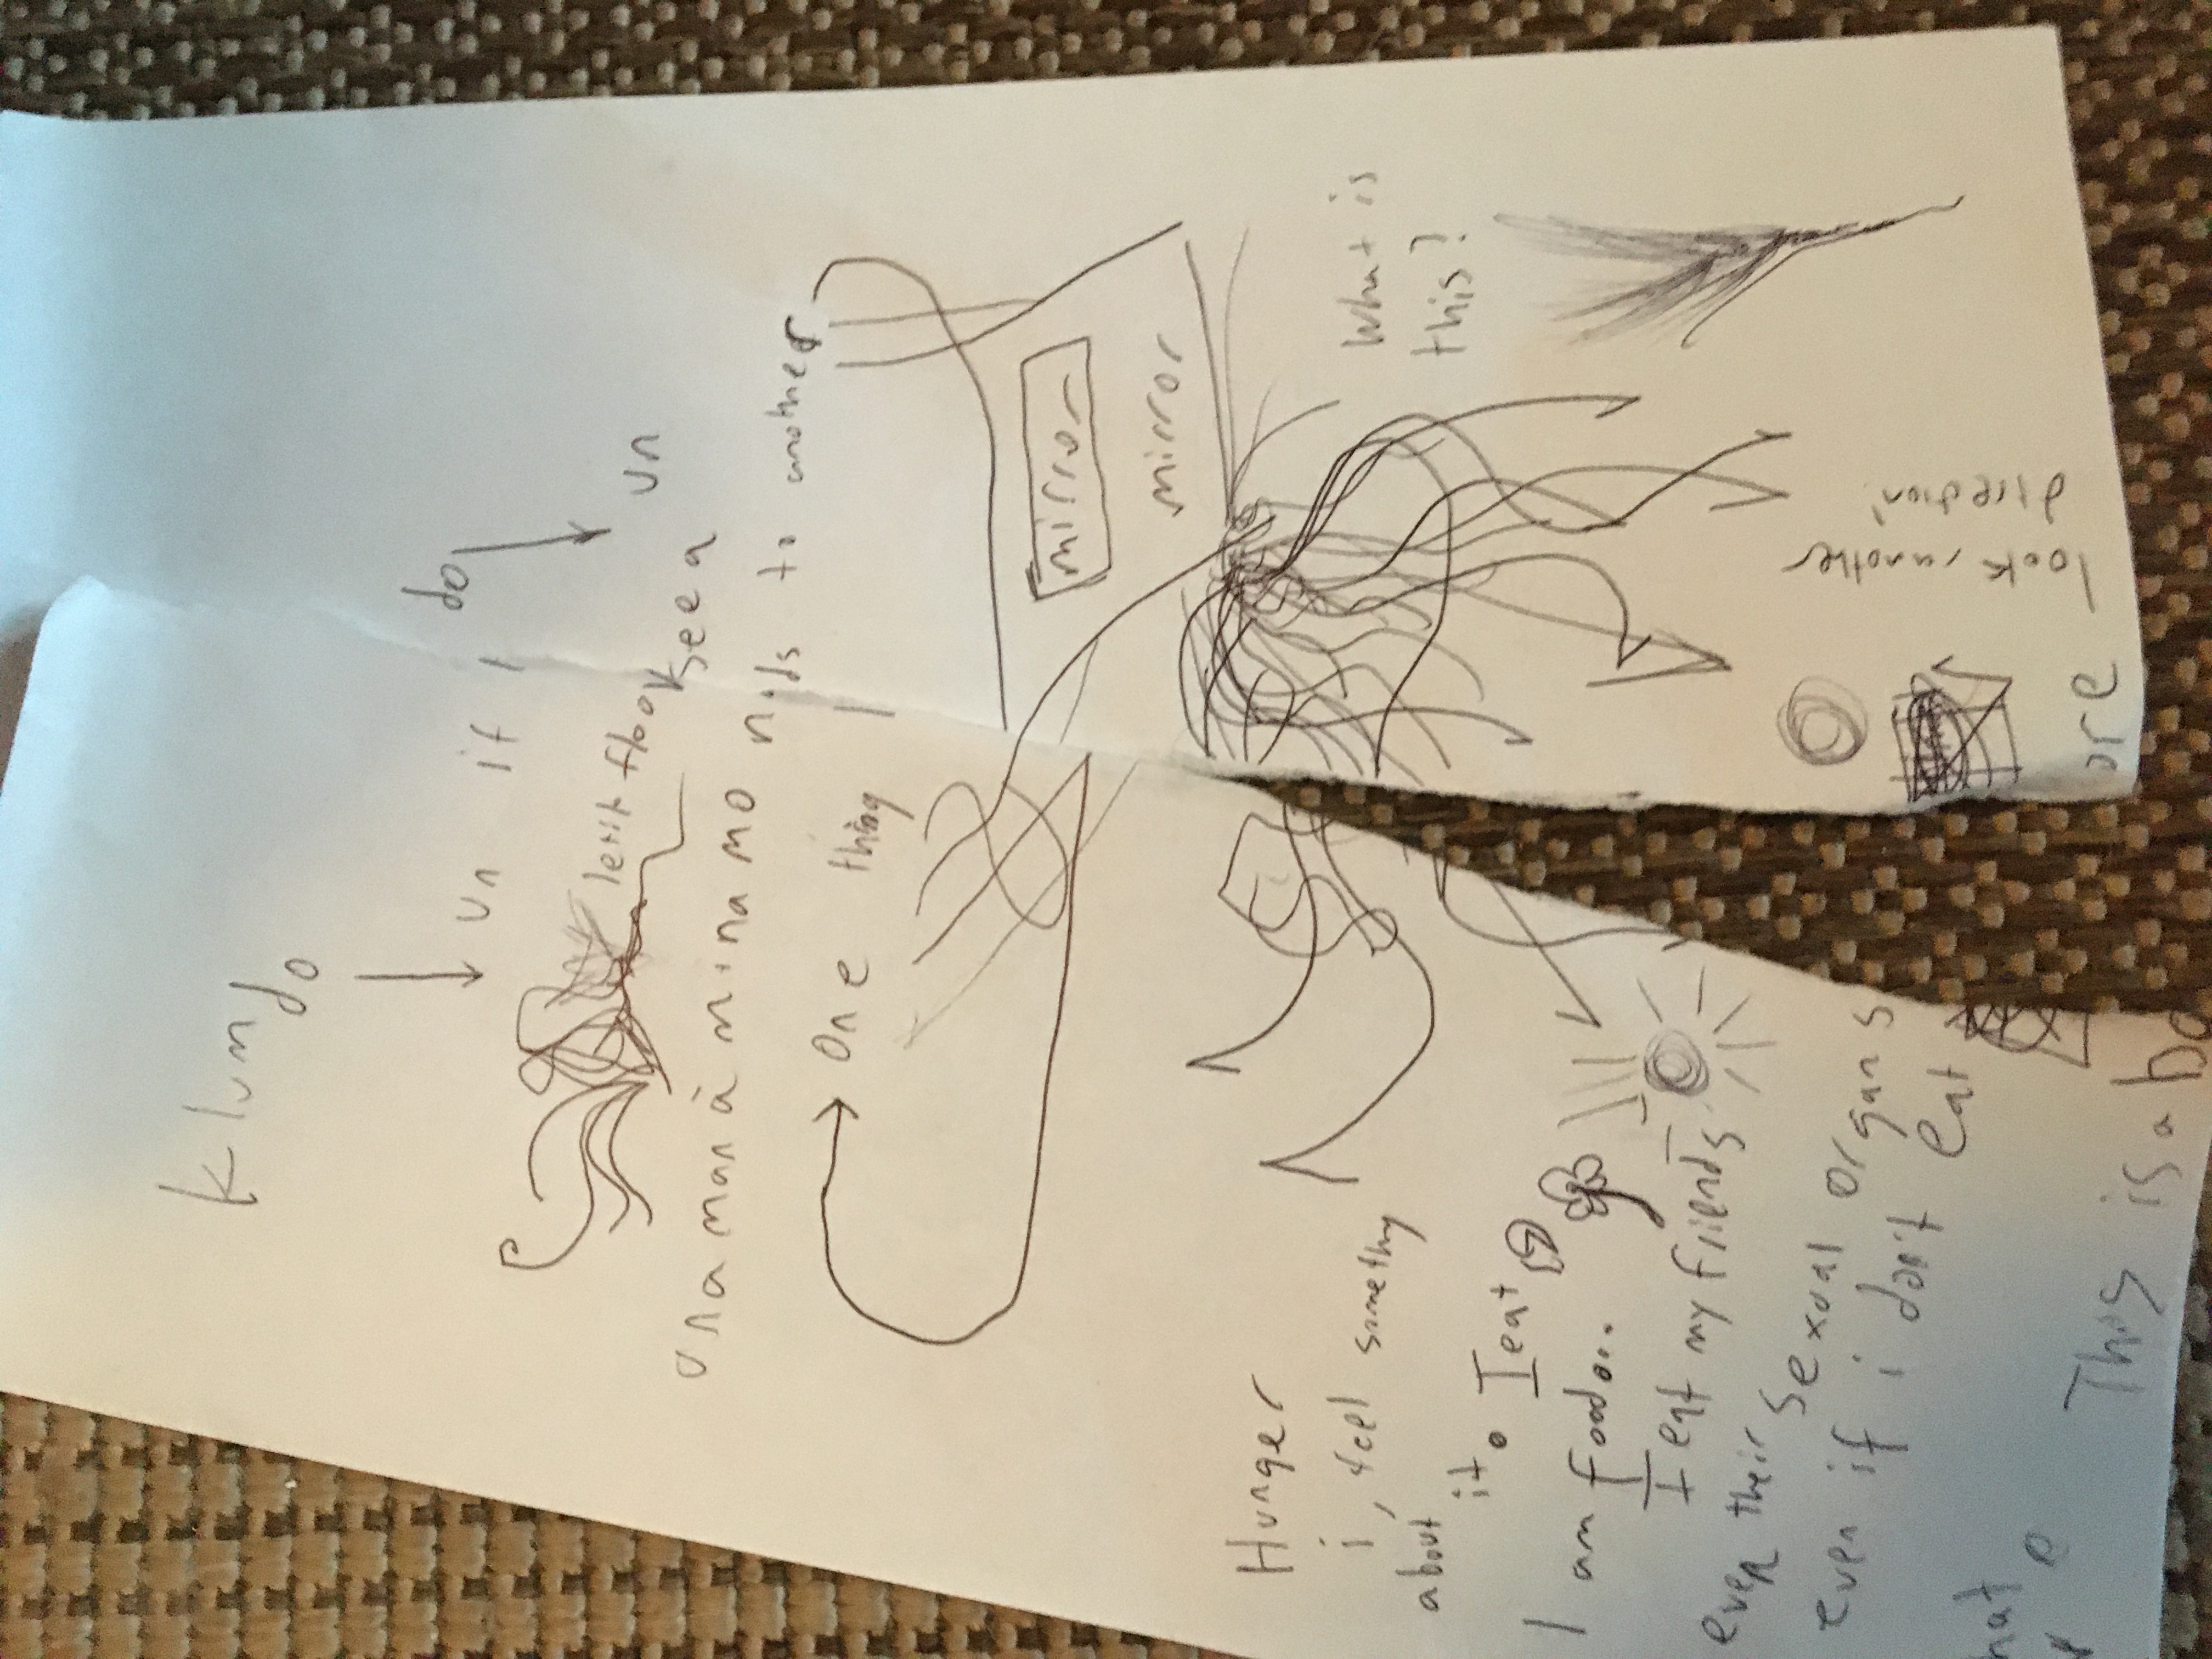 K lum do
un if I do un
see a
una mana mina mo nids to another
one thing
mirror
mirror
What is
this?
look another
direction
Hunger
i, feel something
about it. I eat
I am food...
I eat my friends.
even their sexual organs
even if i don't eat
This is a